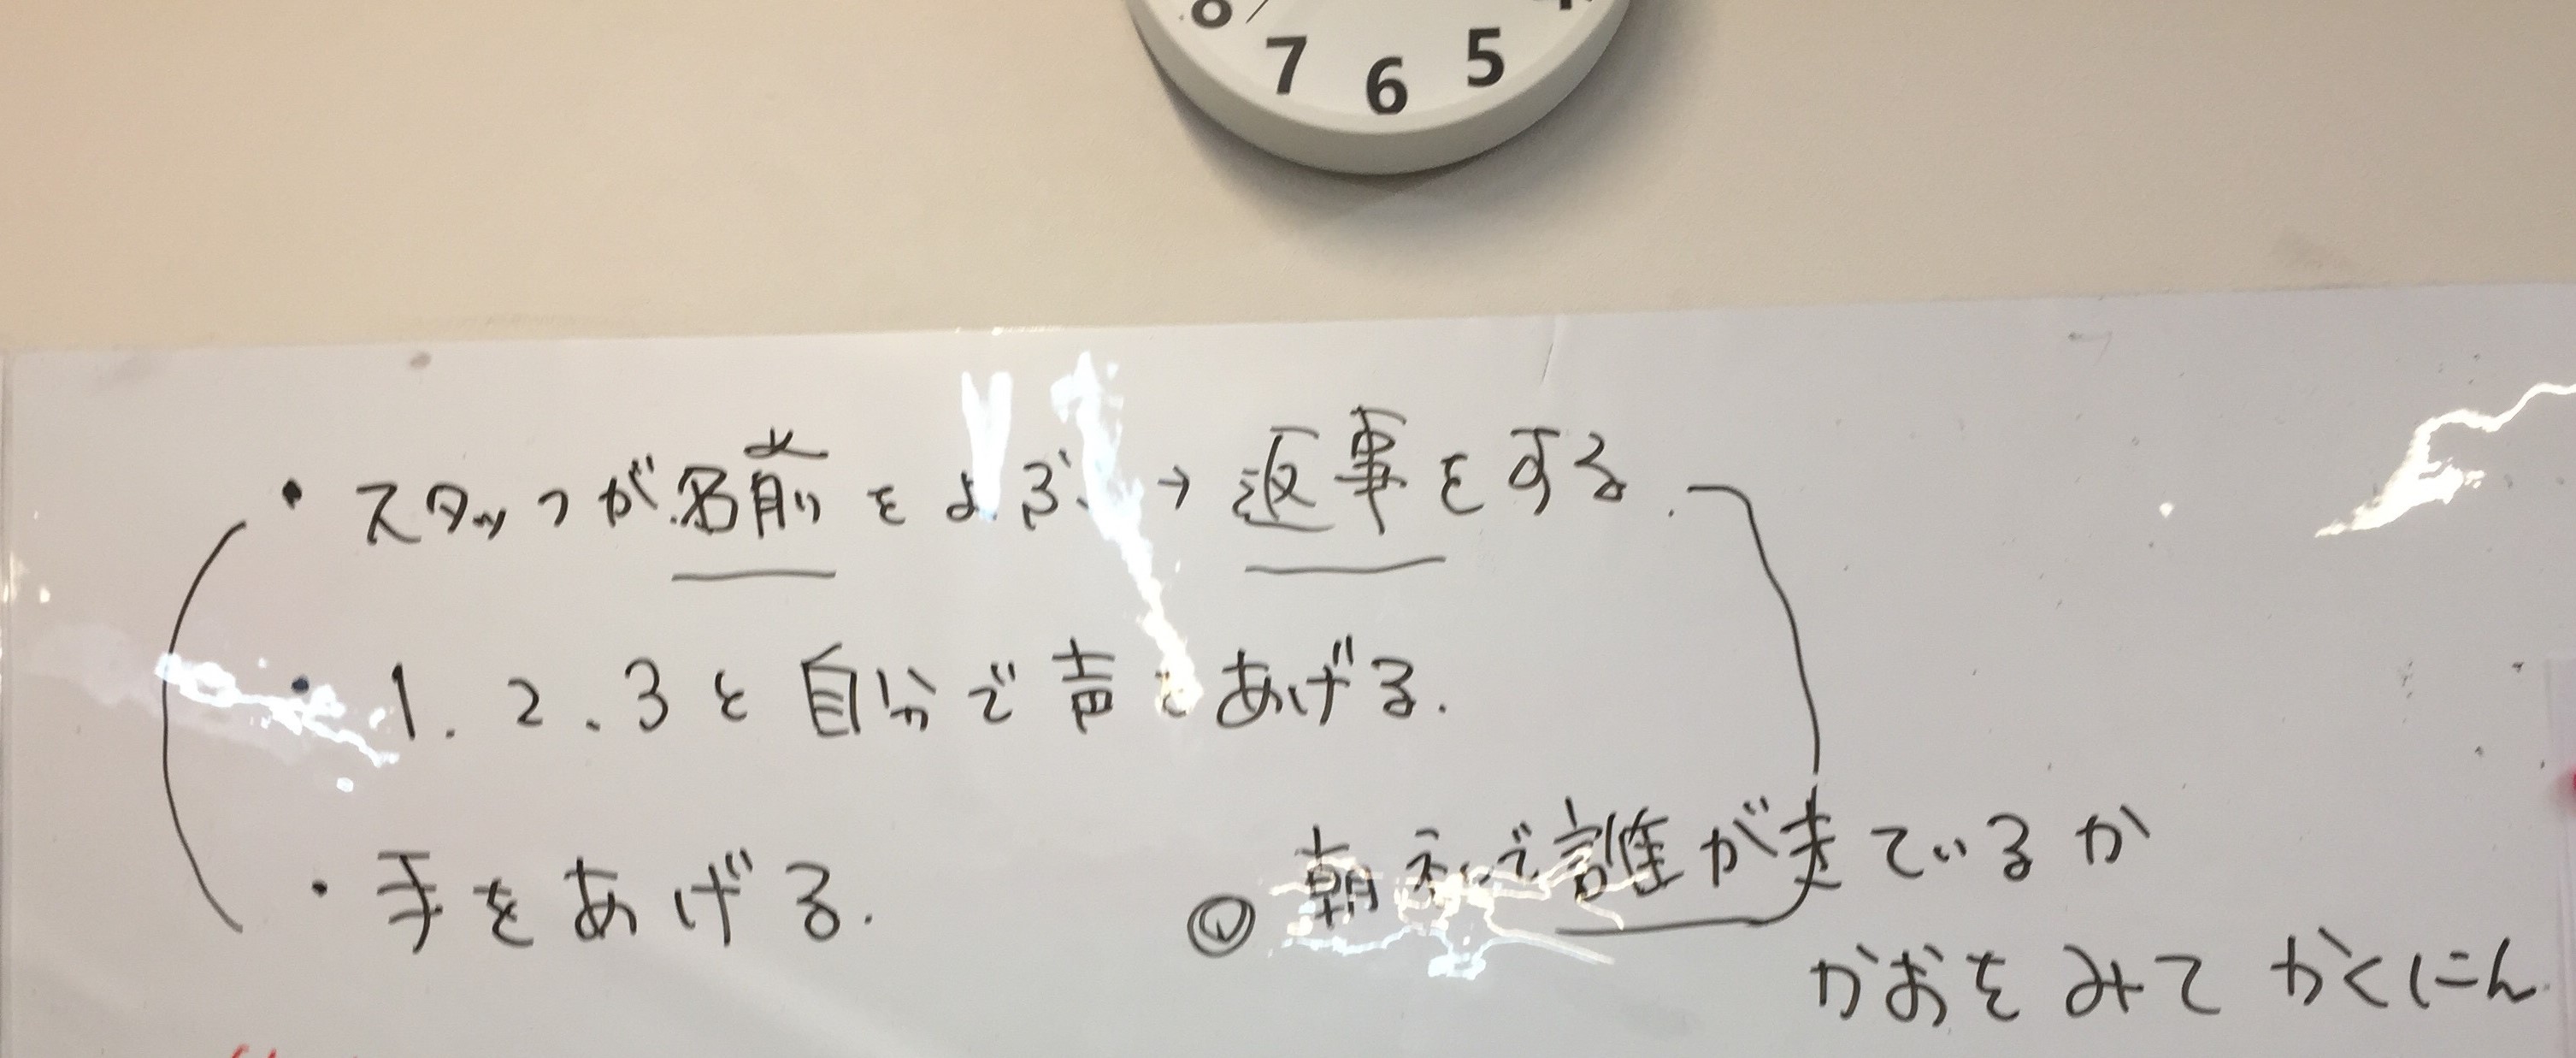 8 7 6 5 4
・スタッフが名前をよぶ → 返事をする.
・1. 2. 3と自分で声をあげる.
・手をあげる.
◎朝礼で誰が来ているか
かおをみて かくにん.